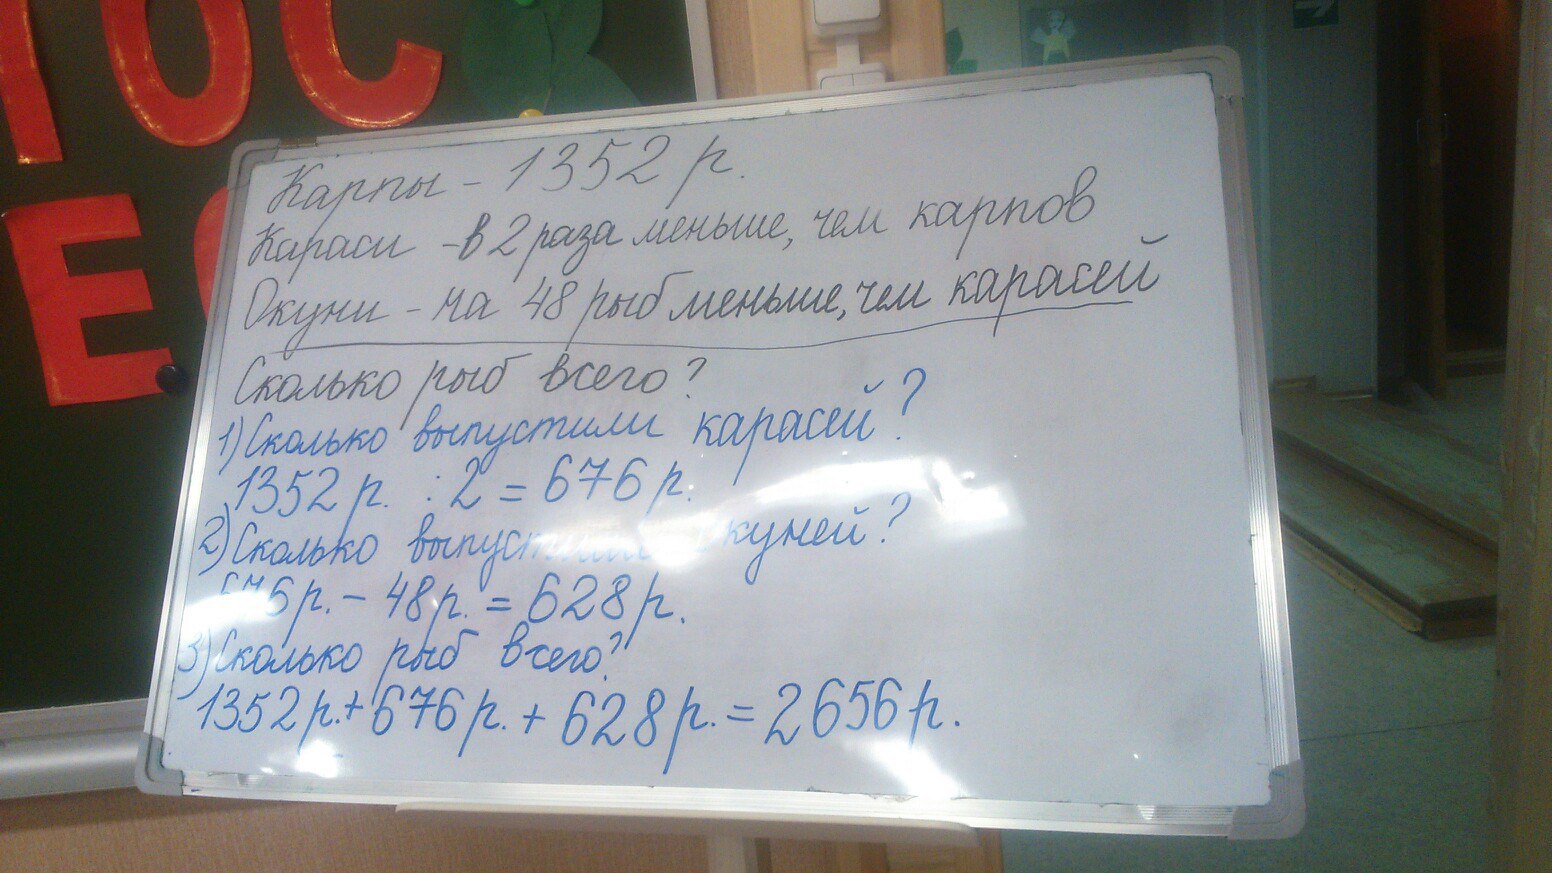 ТОС
Е
Карпы - 1352 р.
Караси - в 2 раза меньше, чем карпов
Окуни - на 48 рыб меньше, чем карасей
Сколько рыб всего?
1) Сколько выпустили карасей?
1352 р. : 2 = 676 р.
2) Сколько выпустили окуней?
676 р. - 48 р. = 628 р.
3) Сколько рыб всего?
1352 р. + 676 р. + 628 р. = 2656 р.